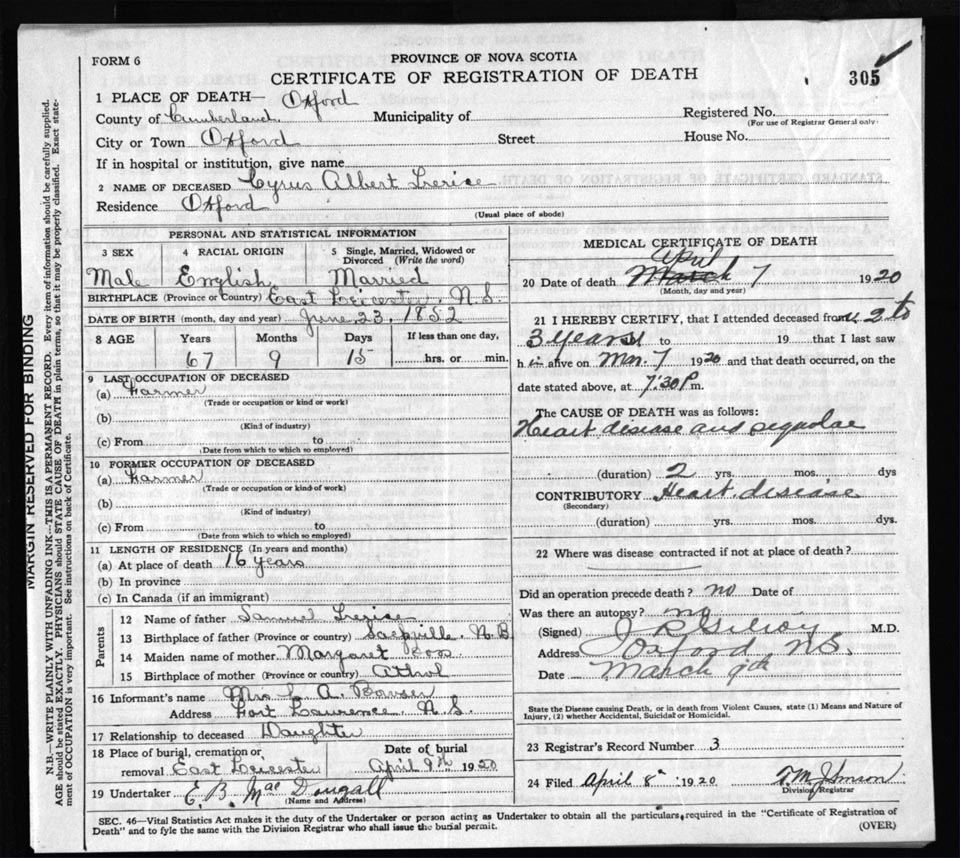 FORM 6
PROVINCE OF NOVA SCOTIA
CERTIFICATE OF REGISTRATION OF DEATH
305
1 PLACE OF DEATH— Oxford
County of Cumberland Municipality of Registered No.
(For use of Registrar General only)
City or Town Oxford Street House No.
If in hospital or institution, give name
2 NAME OF DECEASED Cyrus Albert
Residence Oxford
(Usual place of abode)
PERSONAL AND STATISTICAL INFORMATION
3 SEX 4 RACIAL ORIGIN 5 Single, Married, Widowed or Divorced (Write the word)
Male English Married
BIRTHPLACE (Province or Country) East Leicester, N.S.
DATE OF BIRTH (month, day and year) June 23, 1852
8 AGE Years Months Days If less than one day,
67 9 15 hrs. or min.
9 LAST OCCUPATION OF DECEASED
(a) Farmer
(Trade or occupation or kind or work)
(b)
(Kind of industry)
(c) From to
(Date from which to which so employed)
10 FORMER OCCUPATION OF DECEASED
(a) Farmer
(Trade or occupation or kind of work)
(b)
(Kind of industry)
(c) From to
(Date from which to which so employed)
11 LENGTH OF RESIDENCE (In years and months)
(a) At place of death 16 years
(b) In province
(c) In Canada (if an immigrant)
Parents
12 Name of father Samuel
13 Birthplace of father (Province or country) Sackville N.B.
14 Maiden name of mother Margaret
15 Birthplace of mother (Province or country) Athol
16 Informant's name Mrs A. Bowser
Address Fort Lawrence N.S.
17 Relationship to deceased Daughter
18 Place of burial, cremation or Date of burial
removal East Leicester April 9th 1920
19 Undertaker E. B. Mac Dougall
(Name and Address)
MEDICAL CERTIFICATE OF DEATH
April
20 Date of death March 7 1920
(Month, day and year)
21 I HEREBY CERTIFY, that I attended deceased from 2 to
3 years to 19 that I last saw
h alive on 7 1920 and that death occurred, on the
date stated above, at 7:30 P m.
The CAUSE OF DEATH was as follows:
Heart disease and
(duration) 2 yrs. mos. dys
CONTRIBUTORY Heart disease
(Secondary)
(duration) yrs. mos. dys.
22 Where was disease contracted if not at place of death?
Did an operation precede death? no Date of
Was there an autopsy? no
(Signed) M.D.
Address Oxford, N.S.
Date March
State the Disease causing Death, or in death from Violent Causes, state (1) Means and Nature of
Injury, (2) whether Accidental, Suicidal or Homicidal.
23 Registrar's Record Number 3
24 Filed April 8th 1920
Division Registrar
SEC. 46—Vital Statistics Act makes it the duty of the Undertaker or person acting as Undertaker to obtain all the particulars required in the "Certificate of Registration of
Death" and to fyle the same with the Division Registrar who shall issue the burial permit.
(OVER)
MARGIN RESERVED FOR BINDING
N.B.—WRITE PLAINLY WITH UNFADING INK—THIS IS A PERMANENT RECORD. Every item of information should be carefully supplied.
AGE should be stated EXACTLY. PHYSICIANS should STATE CAUSE OF DEATH in plain terms, so that it may be properly classified. Exact state-
ment of OCCUPATION is very important. See instructions on back of Certificate.